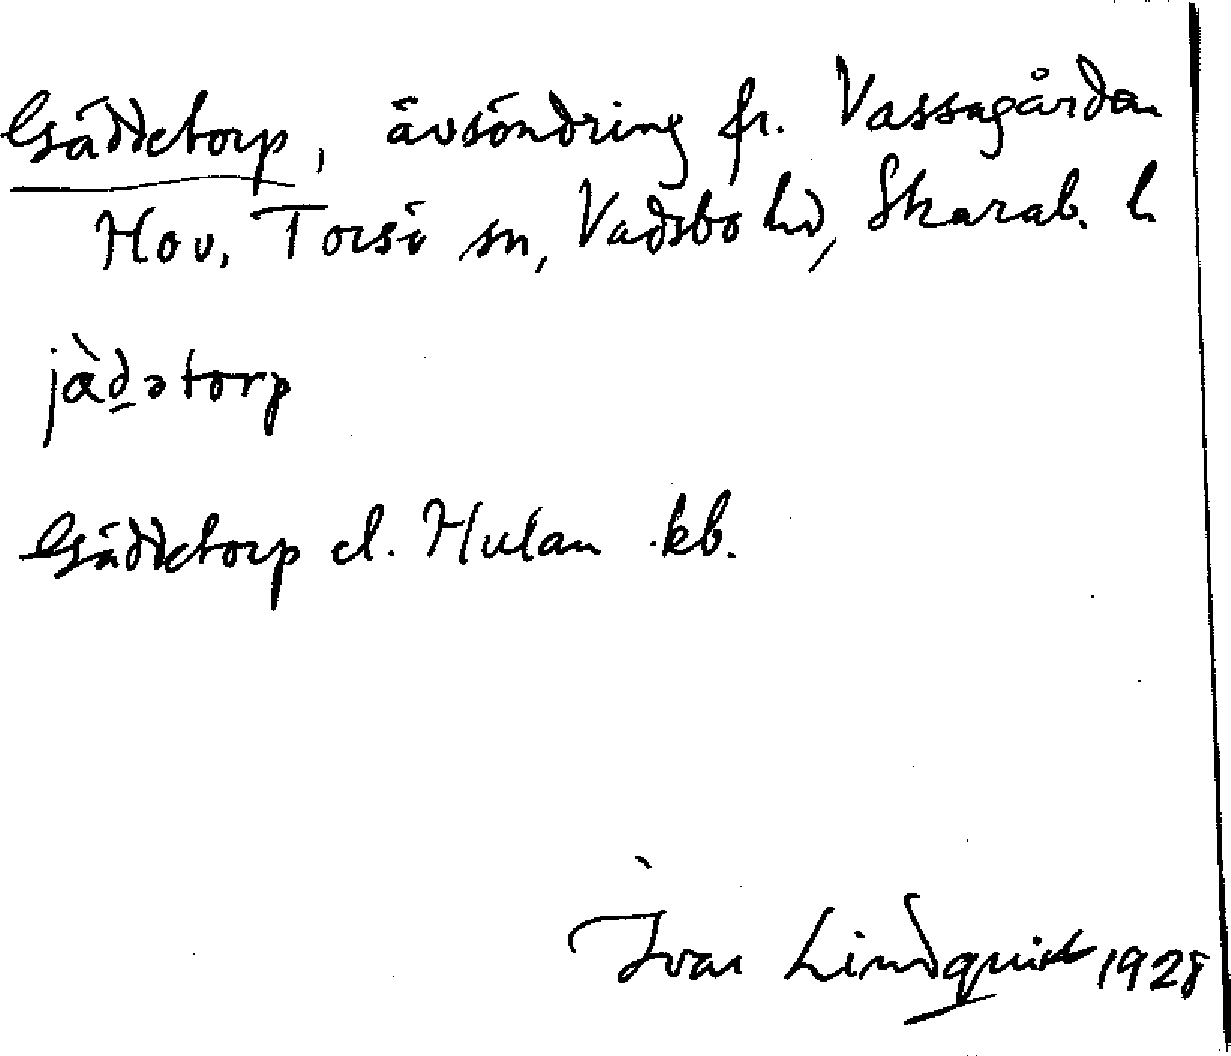 Gäddetorp, avsöndring fr. Vassagården
Hov. Torsö sn, Vadsbo hd, Skarab. l.
jàd̲ətorp
Gäddetorp el. Hulan kb.
Ivar Lindquist 1928